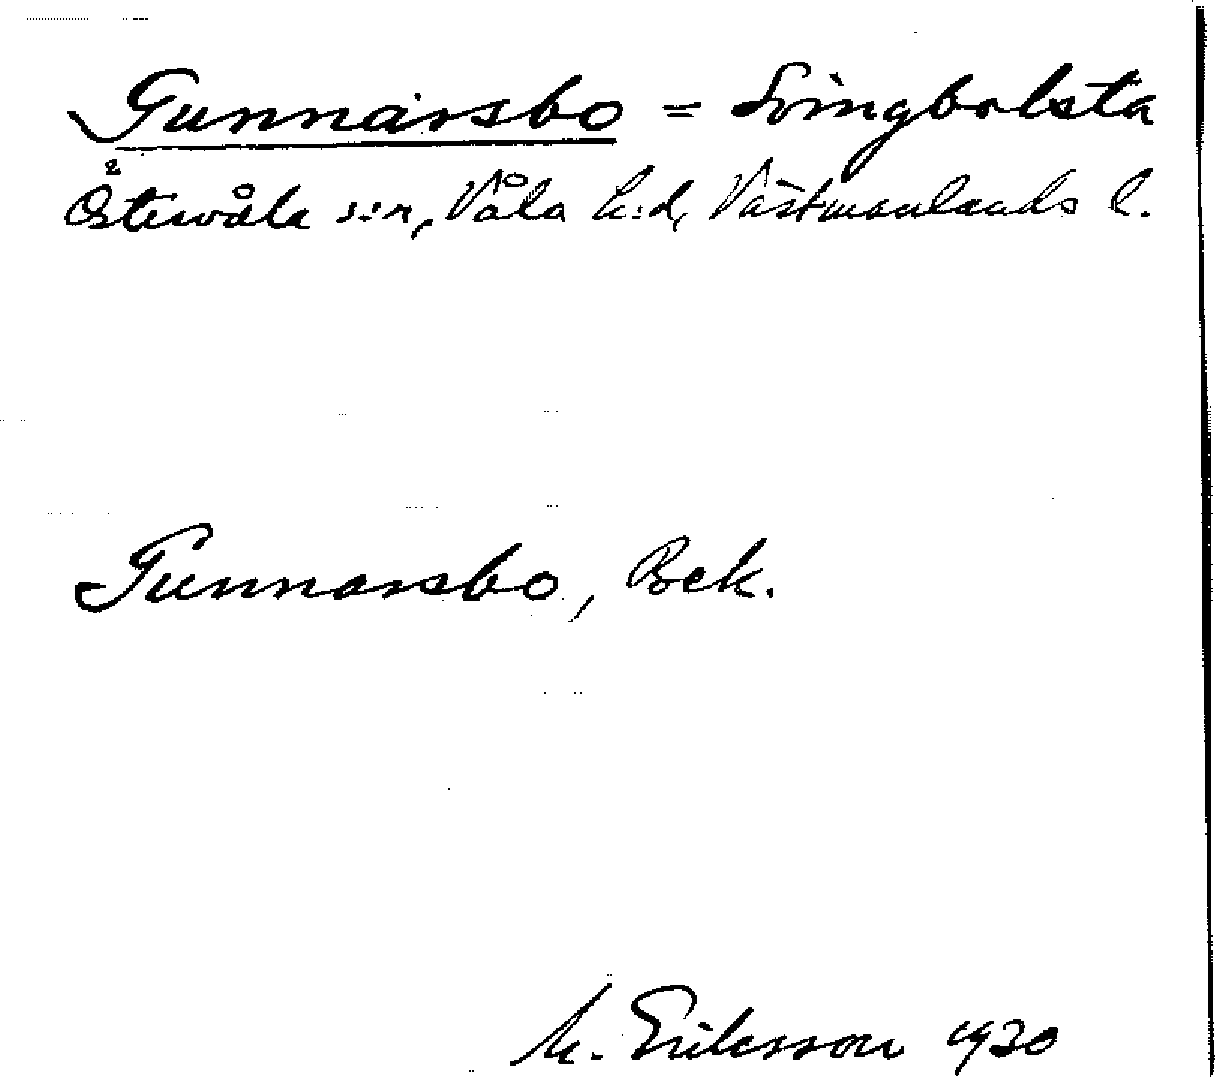 Gunnarsbo = Svingbolsta
Östervåla s:n, Våla h:d, Västmanlands l.
Gunnarsbo, Bek.
M. Eriksson 1930